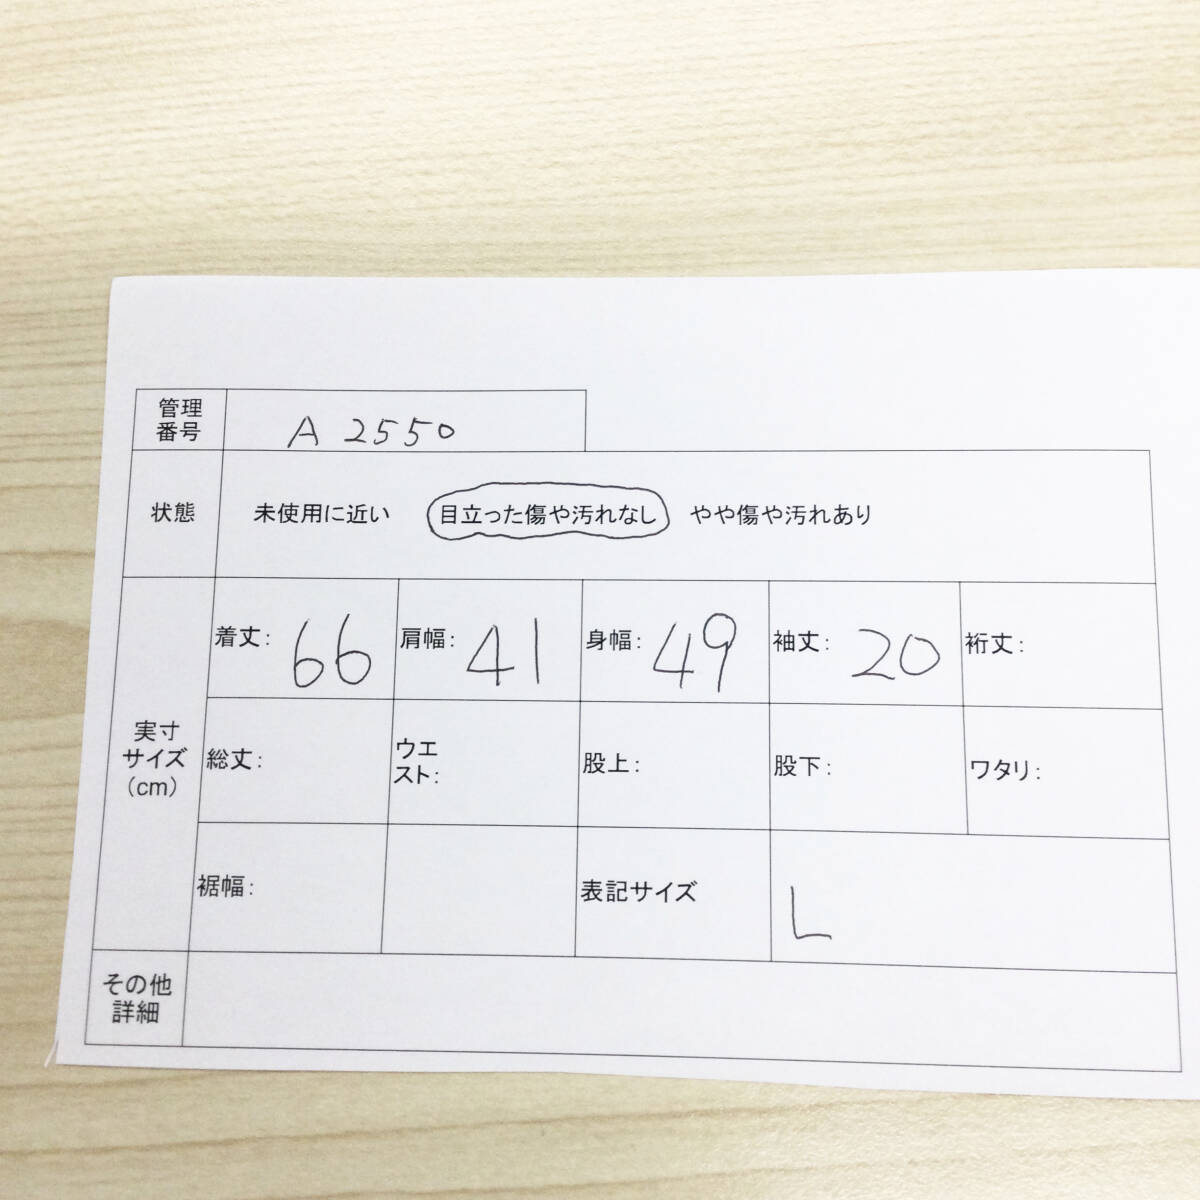 管理
番号
A 2550
状態
未使用に近い 目立った傷や汚れなし やや傷や汚れあり
実寸
サイズ
(cm)
着丈: 66
肩幅: 41
身幅: 49
袖丈: 20
裄丈:
総丈:
ウエ
スト:
股上:
股下:
ワタリ:
裾幅:
表記サイズ
L
その他
詳細